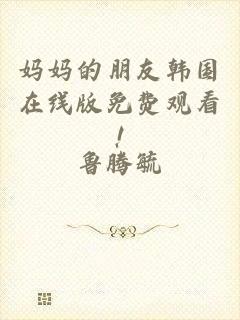 妈妈的朋友韩国
在线版免费观看
！
鲁腾毓